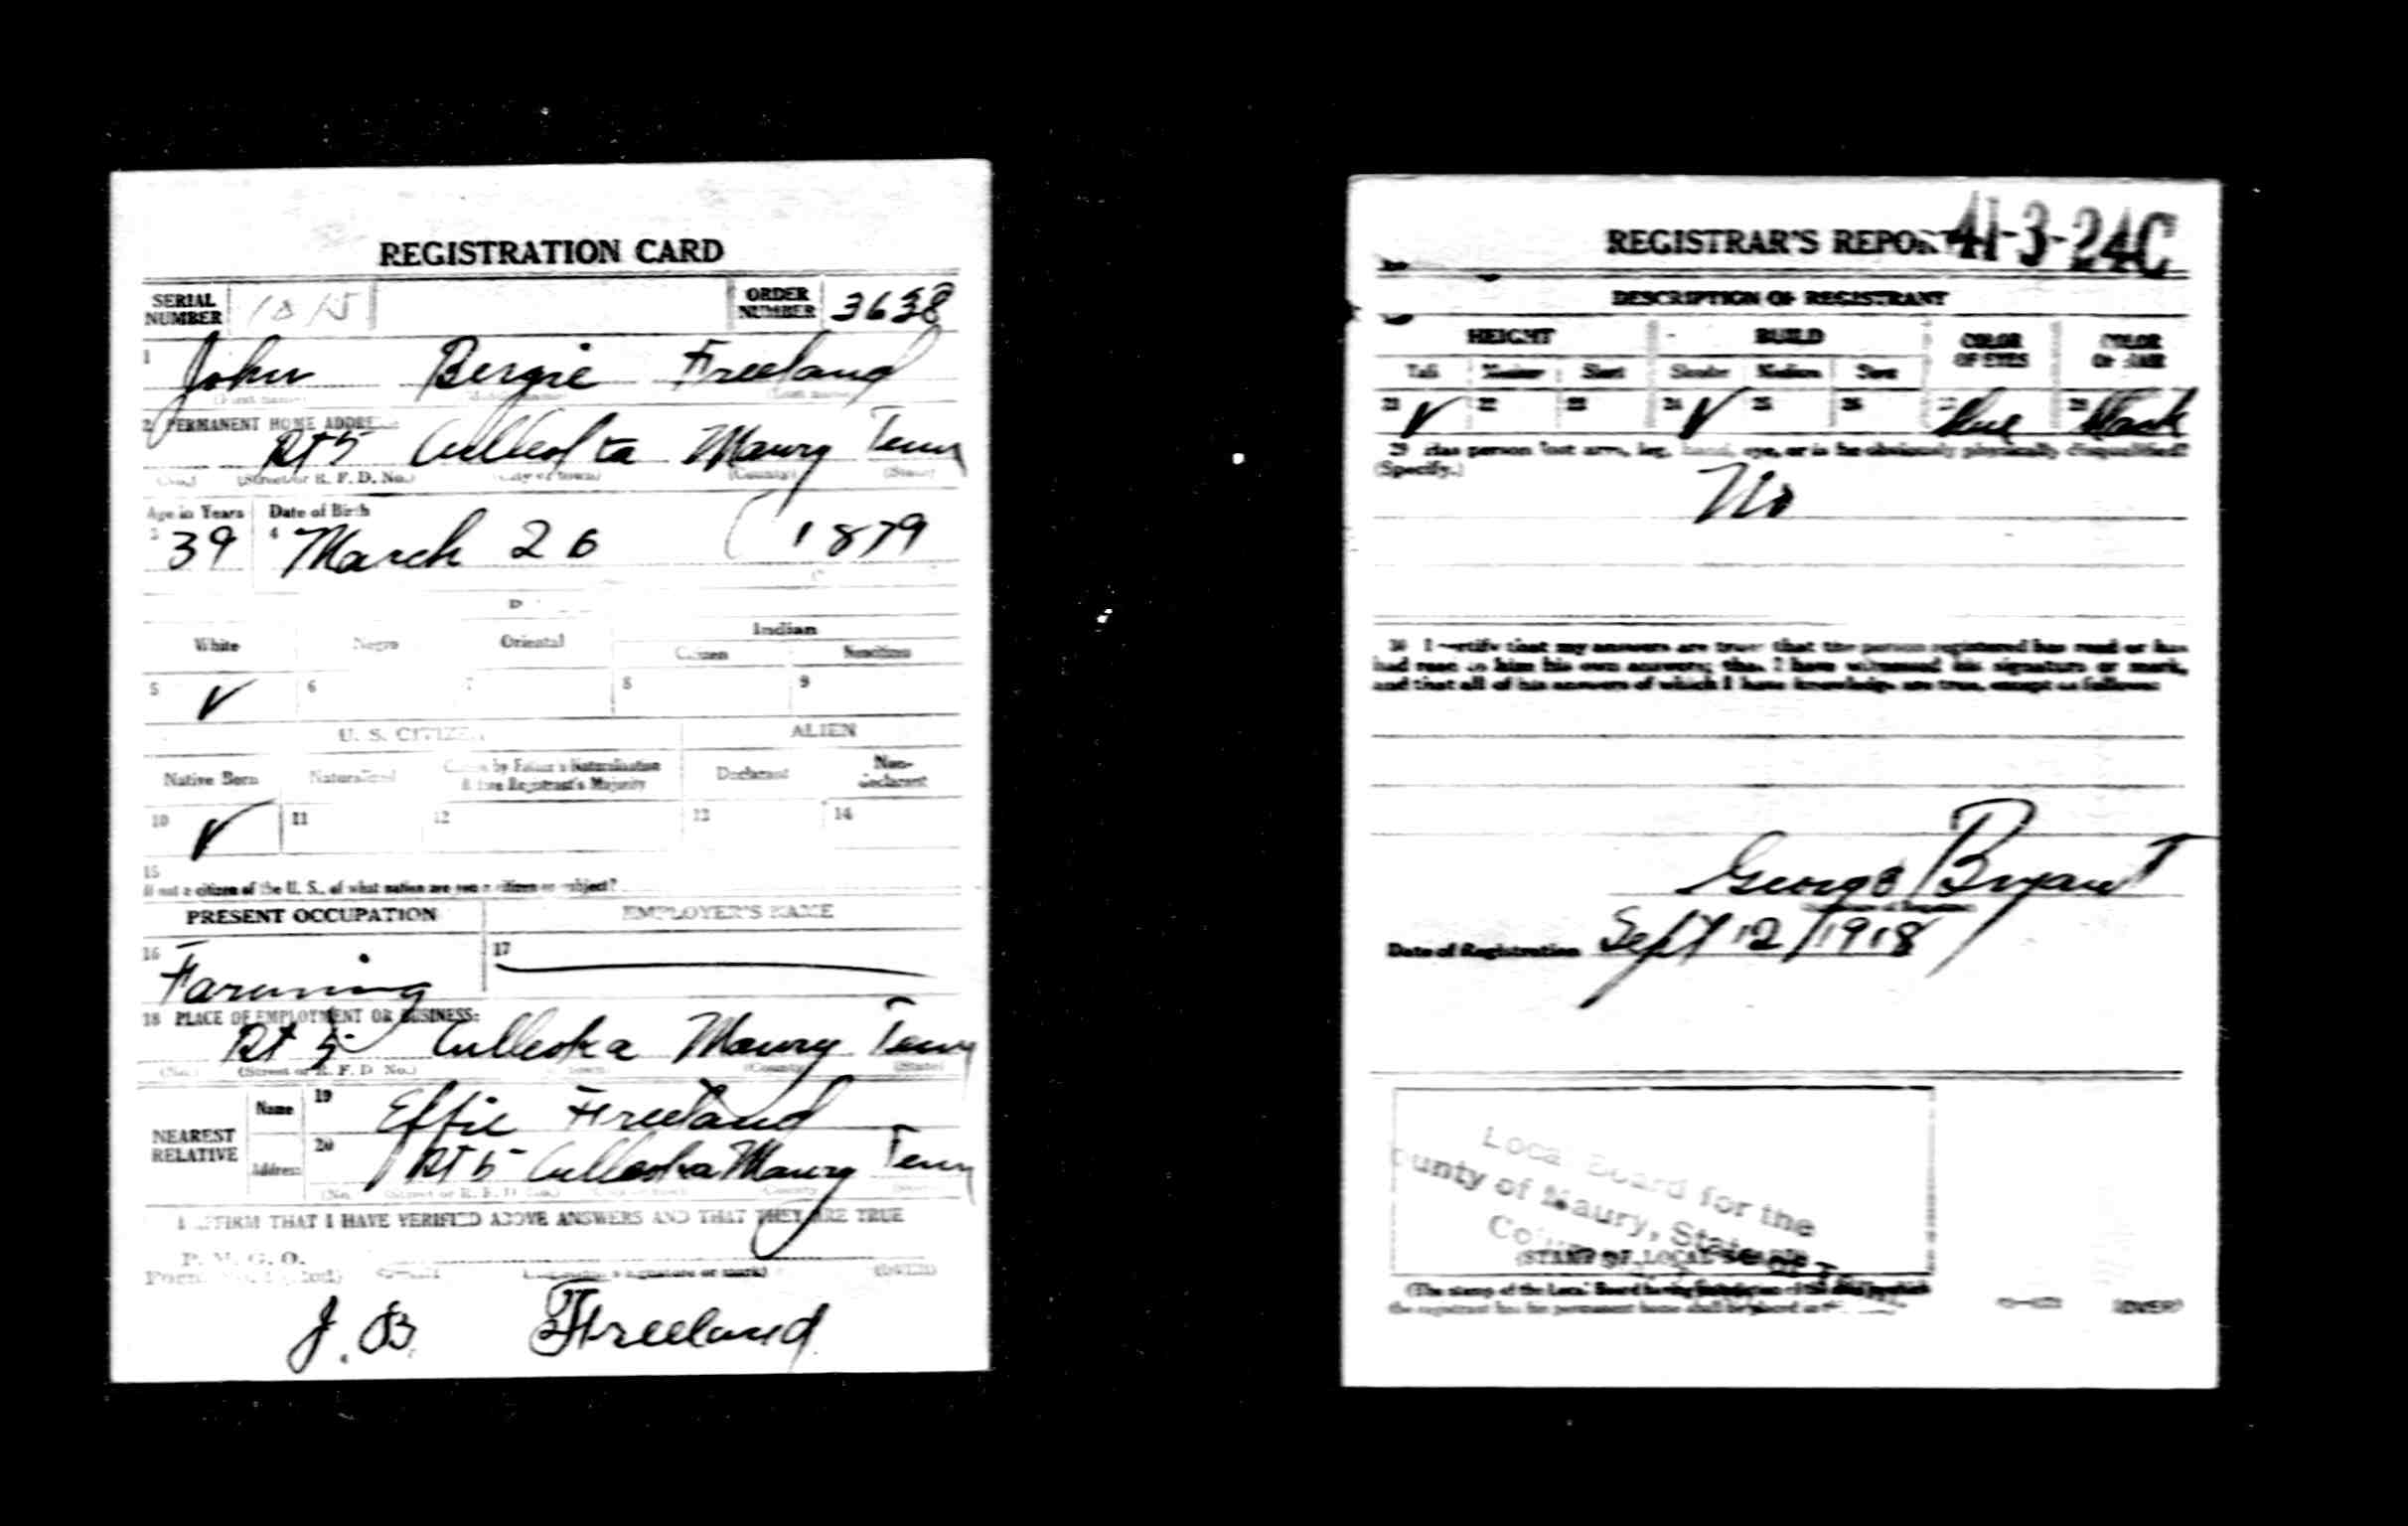 REGISTRATION CARD
SERIAL NUMBER
ORDER NUMBER 3638
1 John Bergie Freeland
2 PERMANENT HOME ADDRE
Rt 5 Culleolta Maury Tenn
(Street or R. F. D. No.) (City or town) (County) (State)
Age in Years Date of Birth
3 39 4 March 26 1879
Indian
White Negro Oriental Citizen
5 V 6 7 8 9
U. S. CITIZEN ALIEN
Native Born Naturalized Citizen by Father's Naturalization Before Registrant's Majority Declarant Non-declarant
10 V 11 12 13 14
15
If not a citizen of the U. S., of what nation are you a citizen or subject?
PRESENT OCCUPATION EMPLOYER'S NAME
16 Farming 17
18 PLACE OF EMPLOYMENT OR BUSINESS:
Rt 5 Culleoka Maury Tenn
(No.) (Street or R. F. D. No.) (County) (State)
NEAREST RELATIVE
Name 19 Effie Freeland
Address 20 Rt 5 Culleoka Maury Tenn
I AFFIRM THAT I HAVE VERIFIED ABOVE ANSWERS AND THAT THEY ARE TRUE
P. M. G. O.
Form
J. B. Freeland
REGISTRAR'S REPORT 41-3-24C
DESCRIPTION OF REGISTRANT
HEIGHT BUILD COLOR OF EYES COLOR OF HAIR
Tall Medium Short Slender Medium Stout
21 V 22 23 24 V 25 26 27 Blue 28 Black
29 Has person lost arm, leg, hand, eye, or is he obviously physically disqualified?
(Specify.)
No
30 I certify that my answers are true; that the person registered has read or has
had read to him his own answers; that I have witnessed his signature or mark,
and that all of his answers of which I have knowledge are true, except as follows:
George Bryant
Date of Registration Sept 12 / 1918
Local Board for the
ounty of Maury, State of
(STAMP OF LOCAL BOARD)
(The stamp of the Local Board having jurisdiction of the area in which
the registrant has his permanent home shall be placed in
(OVER)